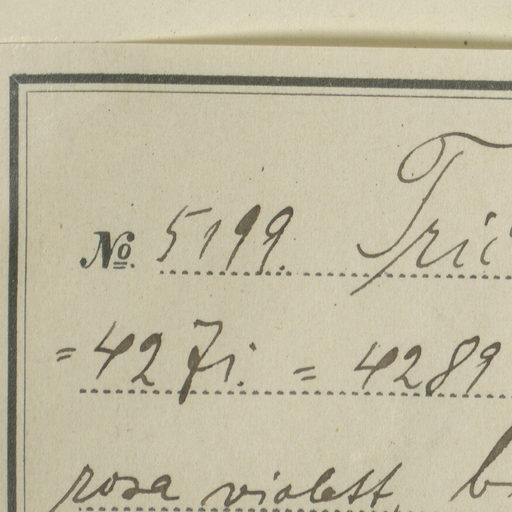 № 5199. Tric
= 427i. = 4289
rosa violett, b